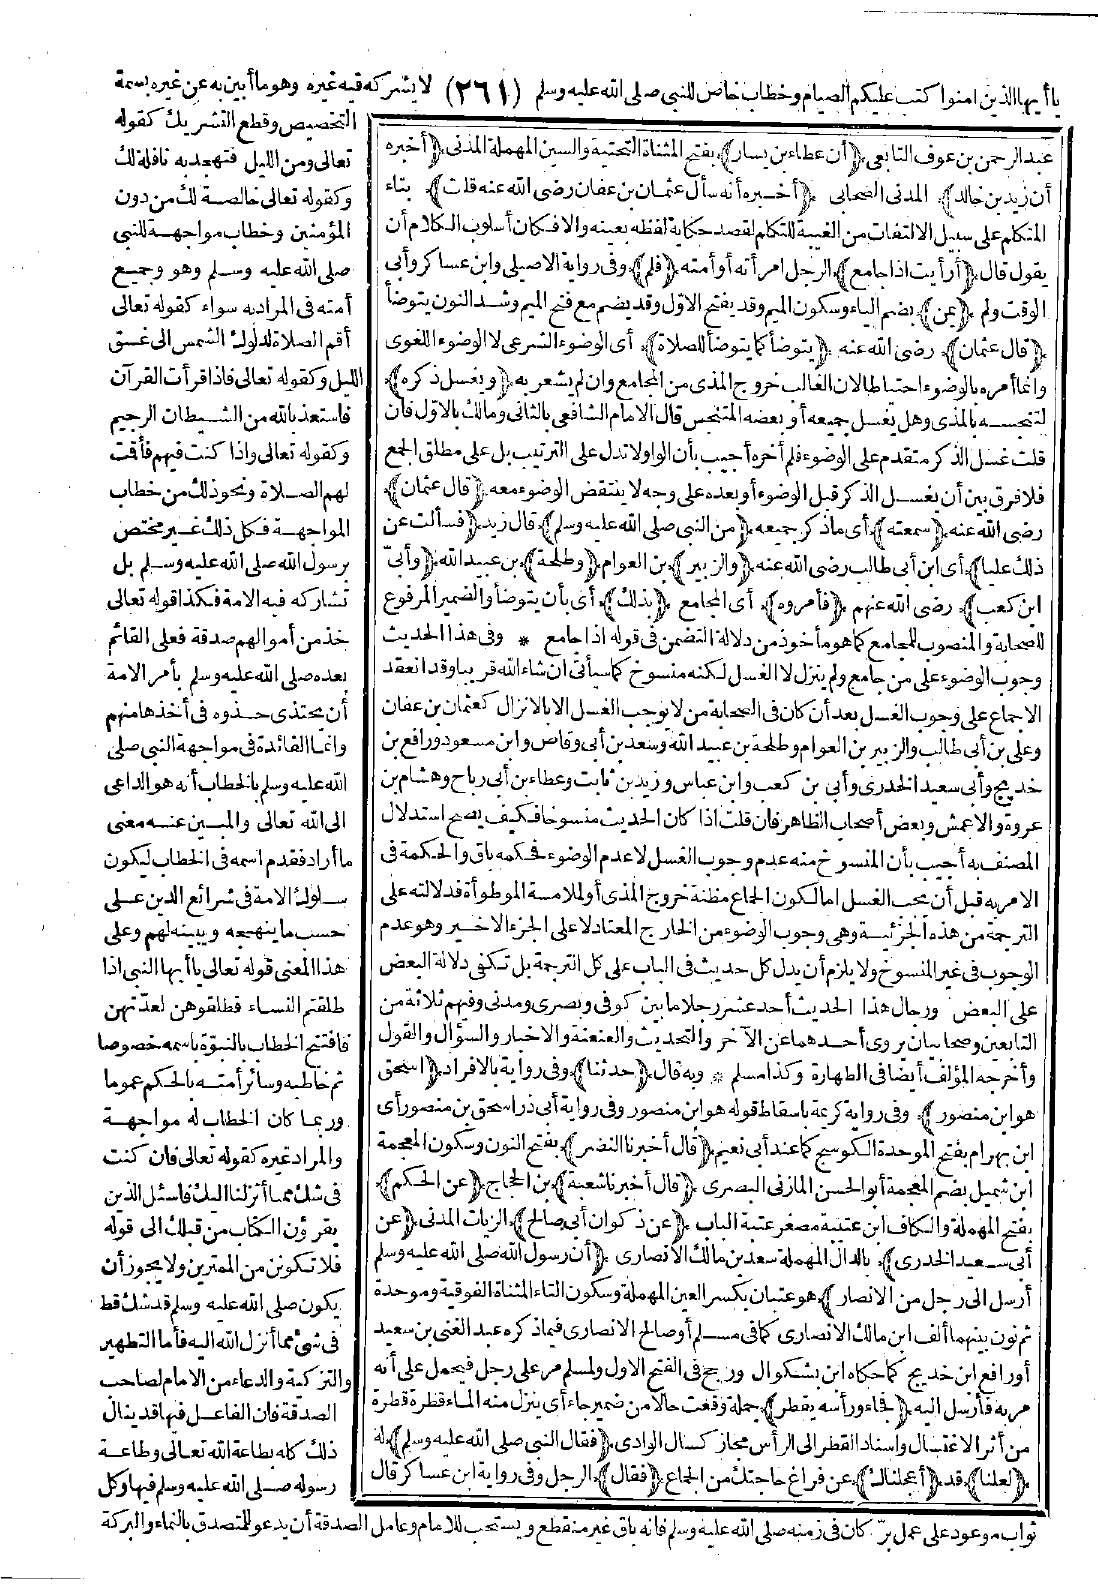 يا أيها الذين امنوا كتب عليكم الصيام وخطاب خاص للنبي صلى الله عليه وسلم (٢٦١) لا يشركه فيه غيره وهو ما أبين به عن غيره بسمة
عبد الرحمن بن عوف التابعي ﴿أن عطاء بن يسار﴾ بفتح المثناة التحتية والسين المهملة المدني ﴿أخبره
أن زيد بن خالد﴾ المدني الصحابي ﴿أخبره أنه سأل عثمان بن عفان رضى الله عنه قلت﴾ بتاء
المتكلم على سبيل الالتفات من الغيبة للتكلم لقصد حكاية لفظه بعينه والا فكان أسلوب الكلام أن
يقول قال ﴿أرأيت اذا جامع﴾ الرجل امرأته أو أمته ﴿فلم﴾ وفى رواية الاصيلى وابن عساكر وأبى
الوقت ولم ﴿يمن﴾ بضم الياء وسكون الميم وقد يفتح الاول وقد يضم مع فتح الميم وشد النون يتوضأ
﴿قال عثمان﴾ رضى الله عنه ﴿يتوضأ كما يتوضأ للصلاة﴾ أى الوضوء الشرعى لا الوضوء اللغوى
وانما أمره بالوضوء احتياطا لان الغالب خروج المذى من المجامع وان لم يشعر به ﴿ويغسل ذكره﴾
لتنجسه بالمذى وهل يغسل جميعه أو بعضه المتنجس قال الامام الشافعى بالثانى ومالك بالاول فان
قلت غسل الذكر متقدم على الوضوء فلم أخره أجيب بأن الواو لا تدل على الترتيب بل على مطلق الجمع
فلا فرق بين أن يغسل الذكر قبل الوضوء أو بعده على وجه لا ينتقض الوضوء معه ﴿قال عثمان﴾
رضى الله عنه ﴿سمعته﴾ أى ما ذكر جميعه ﴿من النبى صلى الله عليه وسلم﴾ قال زيد ﴿فسألت عن
ذلك عليا﴾ أى ابن أبى طالب رضى الله عنه ﴿والزبير﴾ بن العوام ﴿وطلحة﴾ بن عبيد الله ﴿وأبىّ
ابن كعب﴾ رضى الله عنهم ﴿فأمروه﴾ أى المجامع ﴿بذلك﴾ أى بأن يتوضأ والضمير المرفوع
للصحابة والمنصوب للمجامع كما هو مأخوذ من دلالة التضمن فى قوله اذا جامع * وفى هذا الحديث
وجوب الوضوء على من جامع ولم ينزل لا الغسل لكنه منسوخ كما سيأتى ان شاء الله قريبا وقد انعقد
الاجماع على وجوب الغسل بعد أن كان فى الصحابة من لا يوجب الغسل الا بالانزال كعثمان بن عفان
وعلى بن أبى طالب والزبير بن العوام وطلحة بن عبيد الله وسعد بن أبى وقاص وابن مسعود ورافع بن
خديج وأبى سعيد الخدرى وأبى بن كعب وابن عباس وزيد بن ثابت وعطاء بن أبى رباح وهشام بن
عروة والاعمش وبعض أصحاب الظاهر فان قلت اذا كان الحديث منسوخا فكيف يصح استدلال
المصنف به أجيب بأن المنسوخ منه عدم وجوب الغسل لا عدم الوضوء فحكمه باق والحكمة فى
الامر به قبل أن يجب الغسل اما لكون الجماع مظنة خروج المذى أو لملامسة الموطوأة فدلالته على
الترجمة من هذه الجزئية وهى وجوب الوضوء من الخارج المعتاد لا على الجزء الاخير وهو عدم
الوجوب فى غير المنسوخ ولا يلزم أن يدل كل حديث فى الباب على كل الترجمة بل تكفى دلالة البعض
على البعض ورجال هذا الحديث أحد عشر رجلا ما بين كوفى وبصرى ومدنى وفيهم ثلاثة من
التابعين وصحابيان يروى أحدهما عن الآخر والتحديث والعنعنة والاخبار والسؤال والقول
وأخرجه المؤلف أيضا فى الطهارة وكذا مسلم * وبه قال ﴿حدثنا﴾ وفى رواية بالافراد ﴿اسحق
هو ابن منصور﴾ وفى رواية كريمة باسقاط قوله هو ابن منصور وفى رواية أبى ذر اسحق بن منصور أى
ابن بهرام بفتح الموحدة الكوسج كما عند أبى نعيم ﴿قال أخبرنا النضر﴾ بفتح النون وسكون المعجمة
ابن شميل بضم المعجمة أبو الحسن المازنى البصرى ﴿قال أخبرنا شعبة﴾ بن الحجاج ﴿عن الحكم﴾
بفتح المهملة والكاف ابن عتيبة مصغر عتبة الباب ﴿عن ذكوان أبى صالح﴾ الزيات المدنى ﴿عن
أبى سعيد الخدرى﴾ بالدال المهملة سعد بن مالك الانصارى ﴿أن رسول الله صلى الله عليه وسلم
أرسل الى رجل من الانصار﴾ هو عتبان بكسر العين المهملة وسكون التاء المثناة الفوقية وموحدة
ثم نون بينهما ألف ابن مالك الانصارى كما فى مسلم أو صالح الانصارى فيما ذكره عبد الغنى بن سعيد
أو رافع ابن خديج كما حكاه ابن بشكوال ورجح فى الفتح الاول ولمسلم مر على رجل فيحمل على أنه
مر به فأرسل اليه ﴿فجاء ورأسه يقطر﴾ جملة وقعت حالا من ضمير جاء أى ينزل منه الماء قطرة قطرة
من أثر الاغتسال واسناد القطر الى الرأس مجاز كسال الوادى ﴿فقال النبى صلى الله عليه وسلم﴾ له
﴿لعلنا﴾ قد ﴿أعجلناك﴾ عن فراغ حاجتك من الجماع ﴿فقال﴾ الرجل وفى رواية ابن عساكر قال
التخصيص وقطع التشريك كقوله
تعالى ومن الليل فتهجد به نافلة لك
وكقوله تعالى خالصة لك من دون
المؤمنين وخطاب مواجهة للنبى
صلى الله عليه وسلم وهو وجميع
أمته فى المراد به سواء كقوله تعالى
أقم الصلاة لدلوك الشمس الى غسق
الليل وكقوله تعالى فاذا قرأت القرآن
فاستعذ بالله من الشيطان الرجيم
وكقوله تعالى واذا كنت فيهم فأقت
لهم الصلاة ونحو ذلك من خطاب
المواجهة فكل ذلك غير مختص
برسول الله صلى الله عليه وسلم بل
تشاركه فيه الامة فكذا قوله تعالى
خذ من أموالهم صدقة فعلى القائم
بعده صلى الله عليه وسلم بأمر الامة
أن يحتذى حذوه فى أخذها منهم
وانما الفائدة فى مواجهة النبى صلى
الله عليه وسلم بالخطاب أنه هو الداعى
الى الله تعالى والمبين عنه معنى
ما أراد فقدم اسمه فى الخطاب ليكون
سلوك الامة فى شرائع الدين على
حسب ما ينهجه ويبينه لهم وعلى
هذا المعنى قوله تعالى يا أيها النبى اذا
طلقتم النساء فطلقوهن لعدتهن
فافتتح الخطاب بالنبوة باسمه خصوصا
ثم خاطبه وسائر أمته بالحكم عموما
وربما كان الخطاب له مواجهة
والمراد غيره كقوله تعالى فان كنت
فى شك مما أنزلنا اليك فاسئل الذين
يقرؤن الكتاب من قبلك الى قوله
فلا تكونن من الممترين ولا يجوز أن
يكون صلى الله عليه وسلم قد شك قط
فى شئ مما أنزل الله اليه فأما التطهير
والتزكية والدعاء من الامام لصاحب
الصدقة فان الفاعل فيها قد ينال
ذلك كله بطاعة الله تعالى وطاعة
رسوله صلى الله عليه وسلم فيها وكل
ثواب موعود على عمل برّ كان فى زمنه صلى الله عليه وسلم فانه باق غير منقطع ويستحب للامام وعامل الصدقة أن يدعو للمتصدق بالنماء والبركة